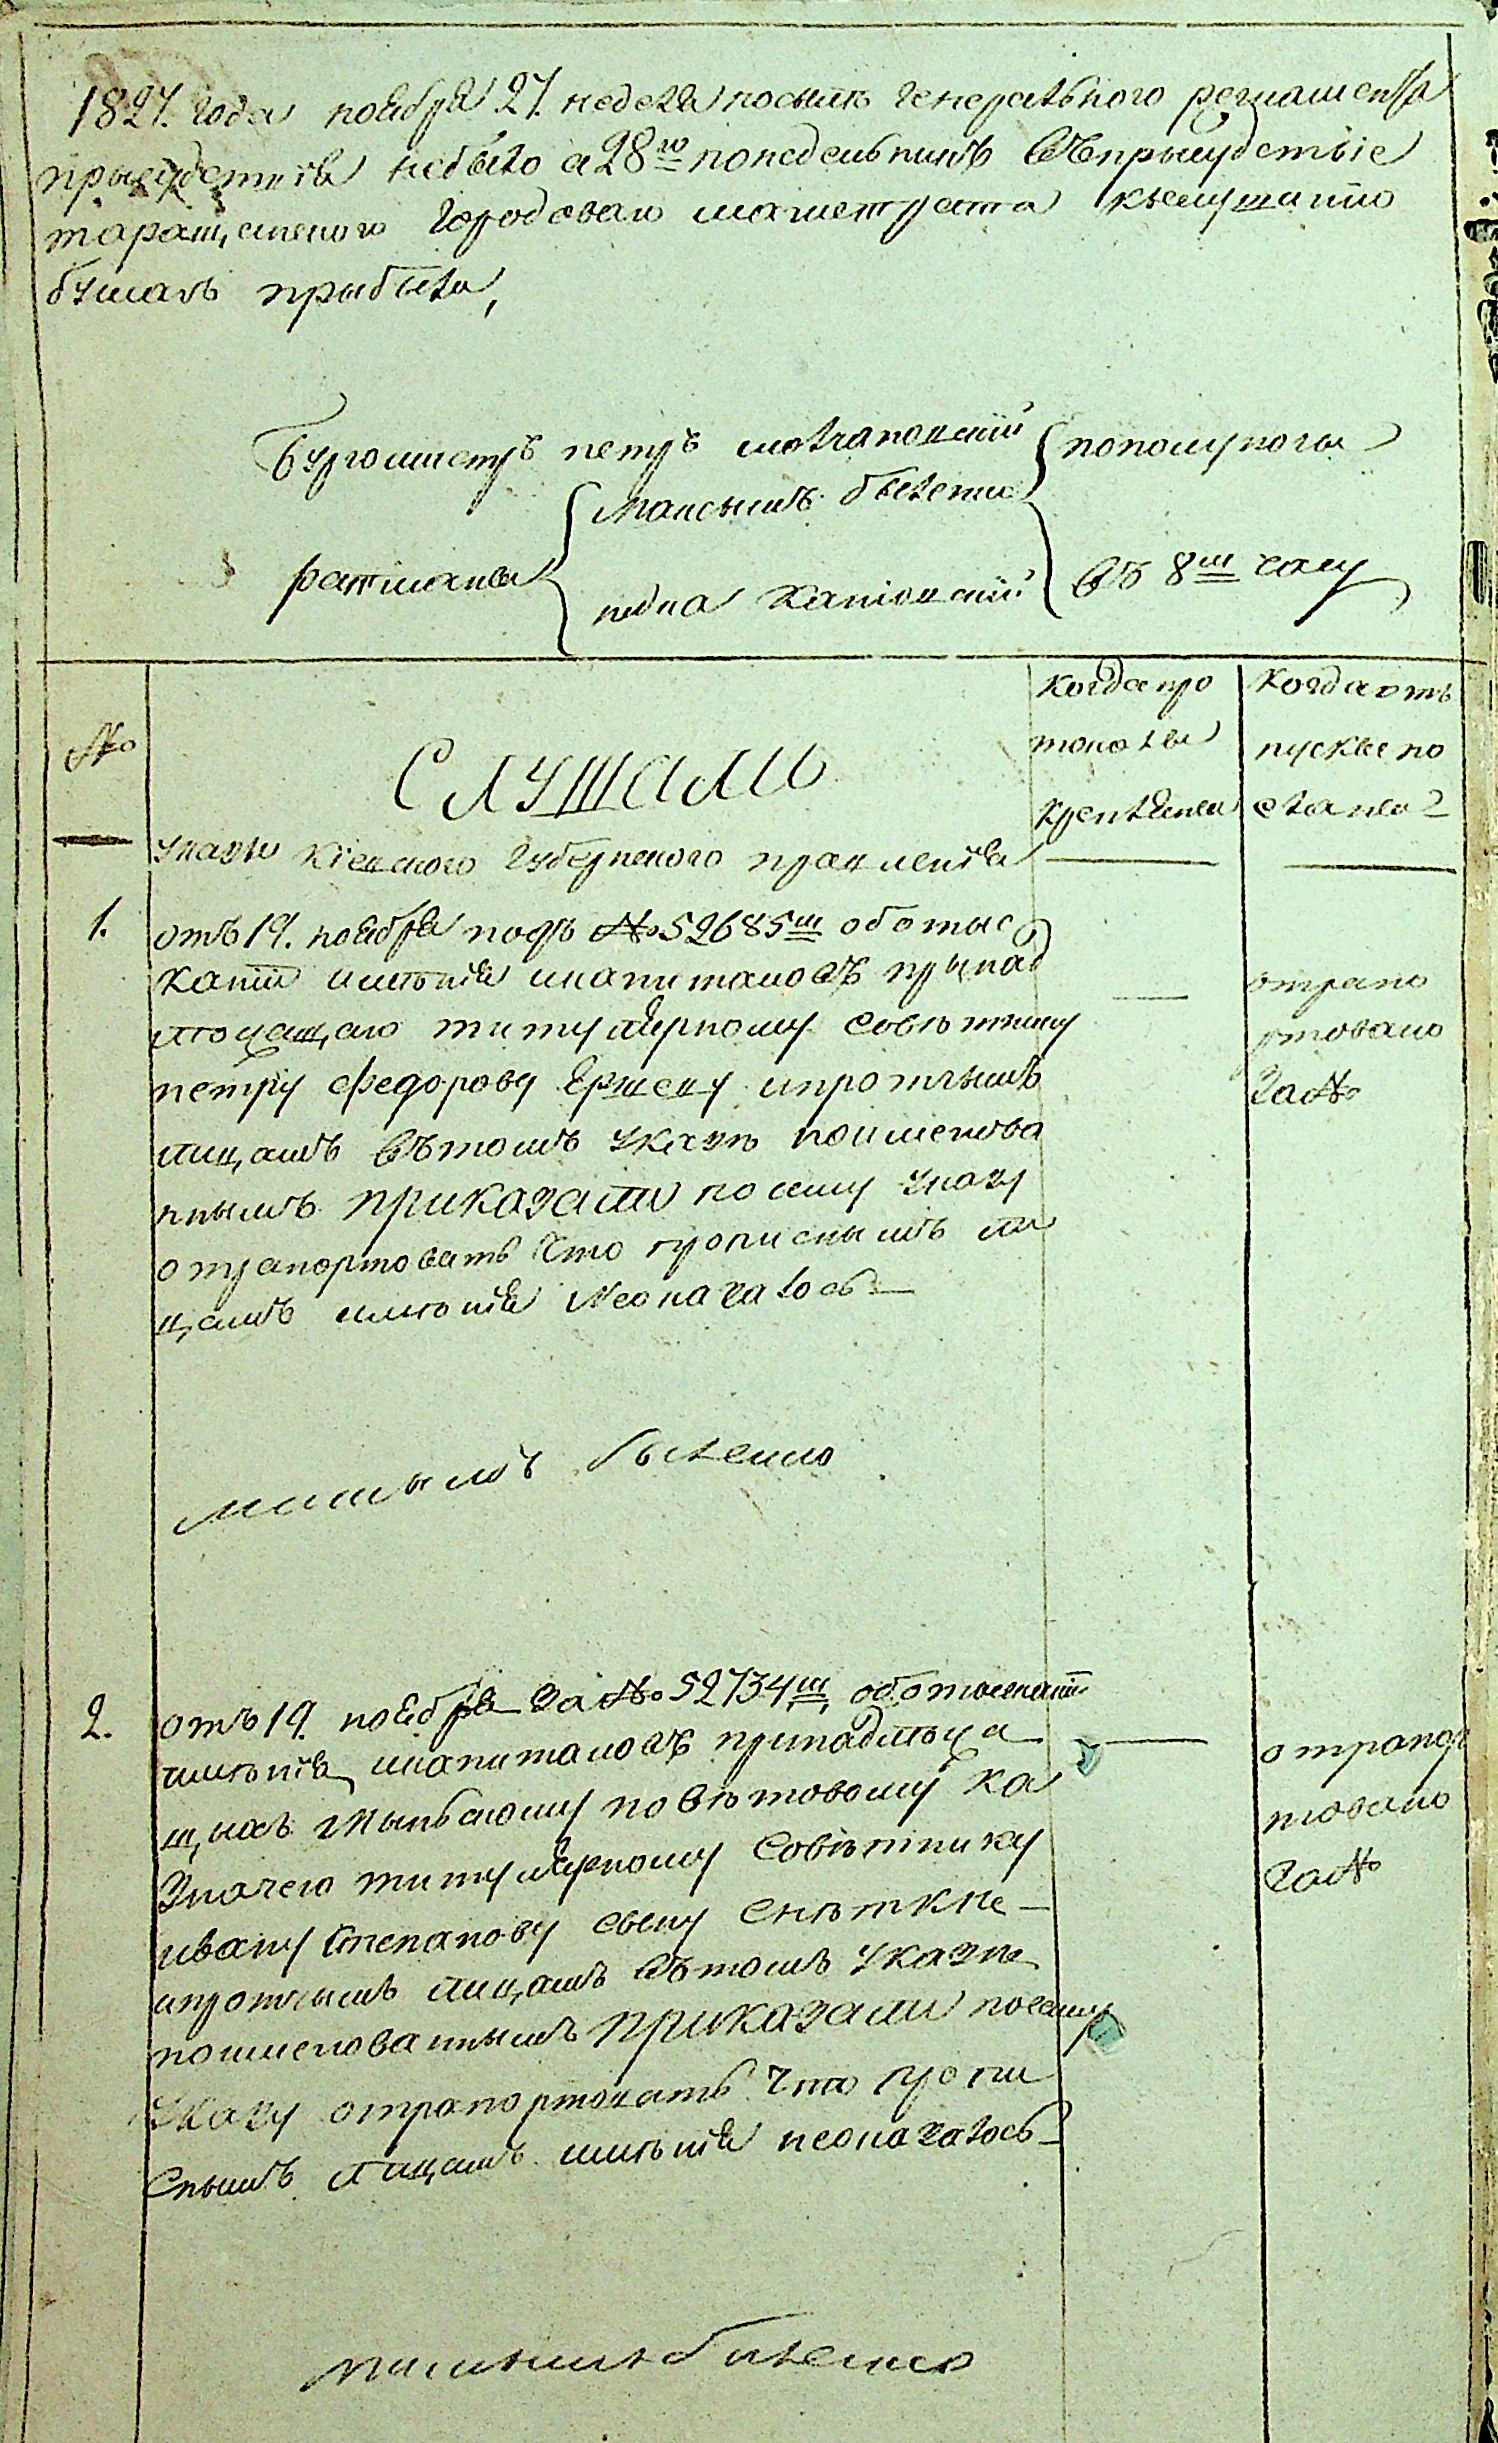 1827. года ноября 27. неделя посылѣ генеральнаго регламента
прысудствія небыло а 28го понедельникъ въ прысудствіе
таращанского городоваго магистрата кслушанію
бумагъ прыбыли,
Бургомистръ петръ молчановскій
пополуногы
ратманы
Максымъ быленко
каніовскій
въ 8ш часу
№
СЛУШАЛИ
когда про
токолы
крепленны
когда отъ
пускы по
сланы
указы кіевского губернского правленія
1.
отъ 19. ноября подъ № 52685ш оботыс
каніи имѣнія икапиталовъ прынад
лежащаго титулярному совѣтнику
петру федорову Ершову ипротчымъ
лицамъ вътомъ указѣ поименова
ннымъ ПРИКАЗАЛИ по сему указу
отрапортовать что прописнымъ ли
цамъ имѣнія Неоказалось
отрапо
ртовано
за №
максымъ быленко
2.
отъ 19. ноября за № 52734ш, оботысканіи
имѣнія икапиталовъ принадлежа
щихъ повѣтовому ка
значею титулярному Совѣтнику
ивану Степанову сыну Снѣткне
ипротчымъ лицамъ вътомъ указѣ
поименованнымъ ПРИКАЗАЛИ посему
указу отрапортовать что пропи
снымъ лицамъ имѣнія неоказалось
отрапор
товано
за №
максымъ быленко